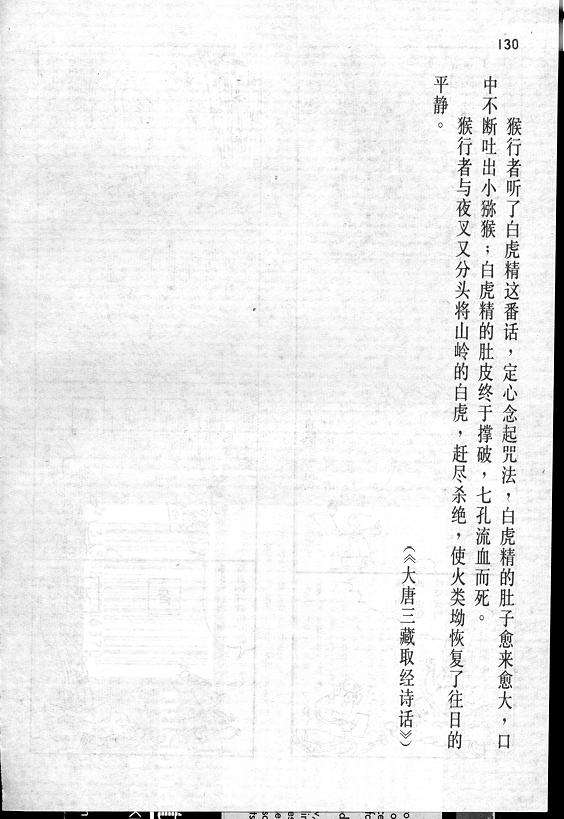 130
猴行者听了白虎精这番话，定心念起咒法，白虎精的肚子愈来愈大，口
中不断吐出小猕猴；白虎精的肚皮终于撑破，七孔流血而死。
猴行者与夜叉又分头将山岭的白虎，赶尽杀绝，使火类坳恢复了往日的
平静。
（《大唐三藏取经诗话》）